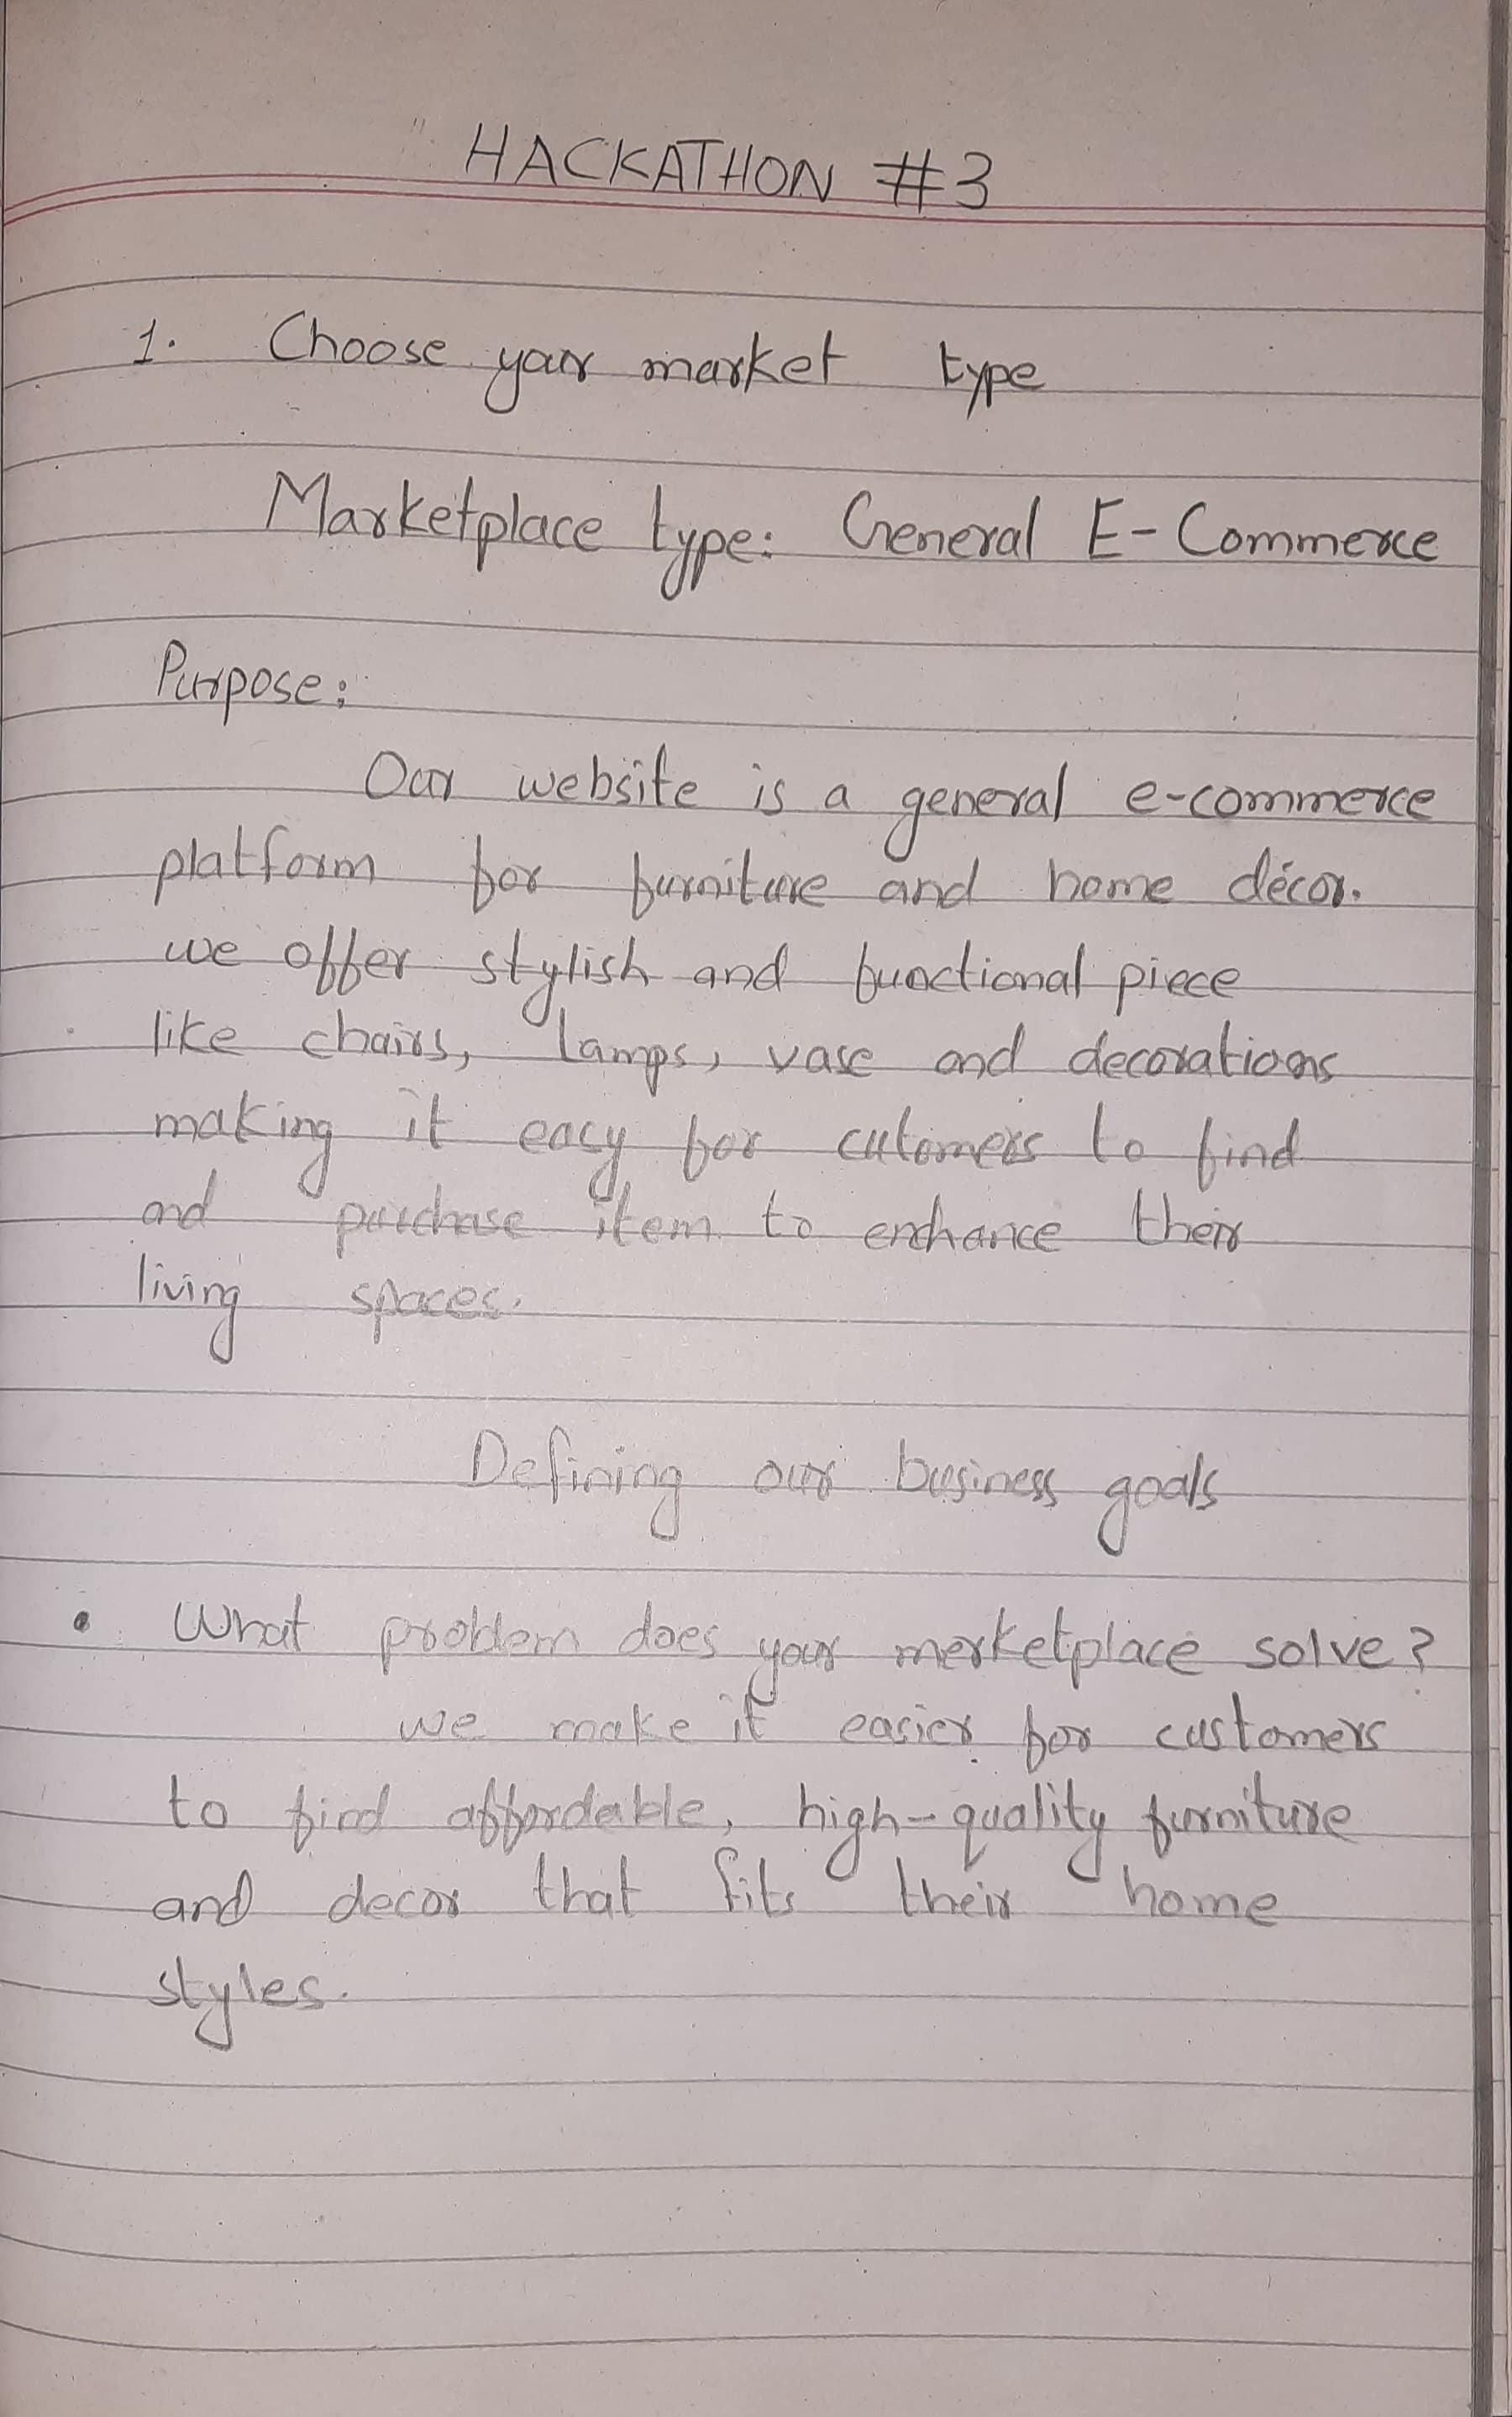 HACKATHON #3
1. Choose your market type
Marketplace type: General E-Commerce
Purpose:
Our website is a general e-commerce
platform for furniture and home décor.
we offer stylish and functional piece
like chairs, lamps, vase and decorations
making it easy for cutomers to find
and purchase item to enhance their
living spaces.
Defining our business goals
• What problem does your merketplace solve?
we make it easier for customers
to find affordable, high-quality furniture
and decor that fits their home
styles.